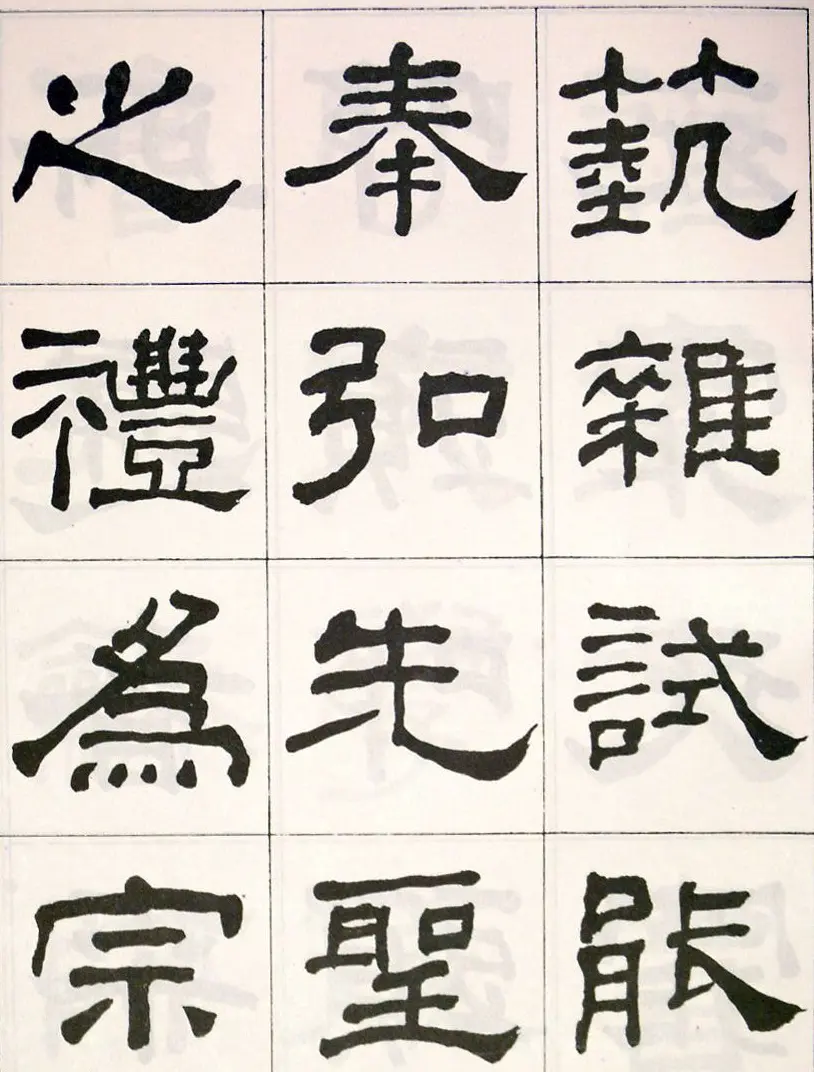 蓺雜試能
奉弘先聖
之禮爲宗